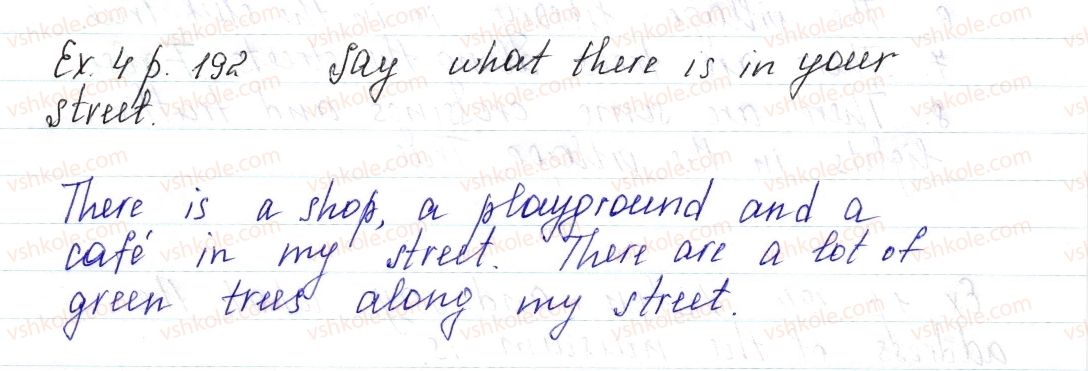 Ex. 4 p. 192 Say what there is in your
street.
There is a shop, a playground and a
café in my street. There are a lot of
green trees along my street.